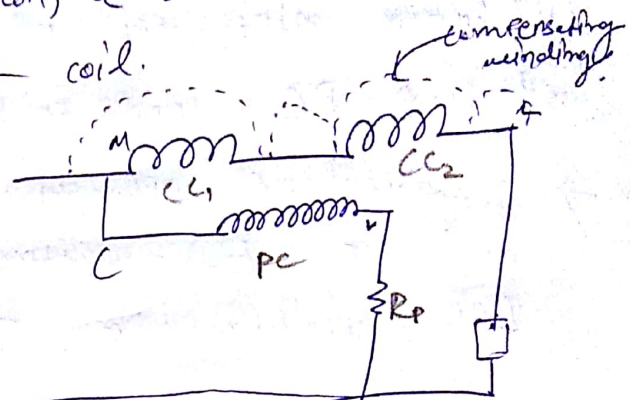 coil.
compensating
winding.
M
CC1
CC2
C
PC
V
Rp